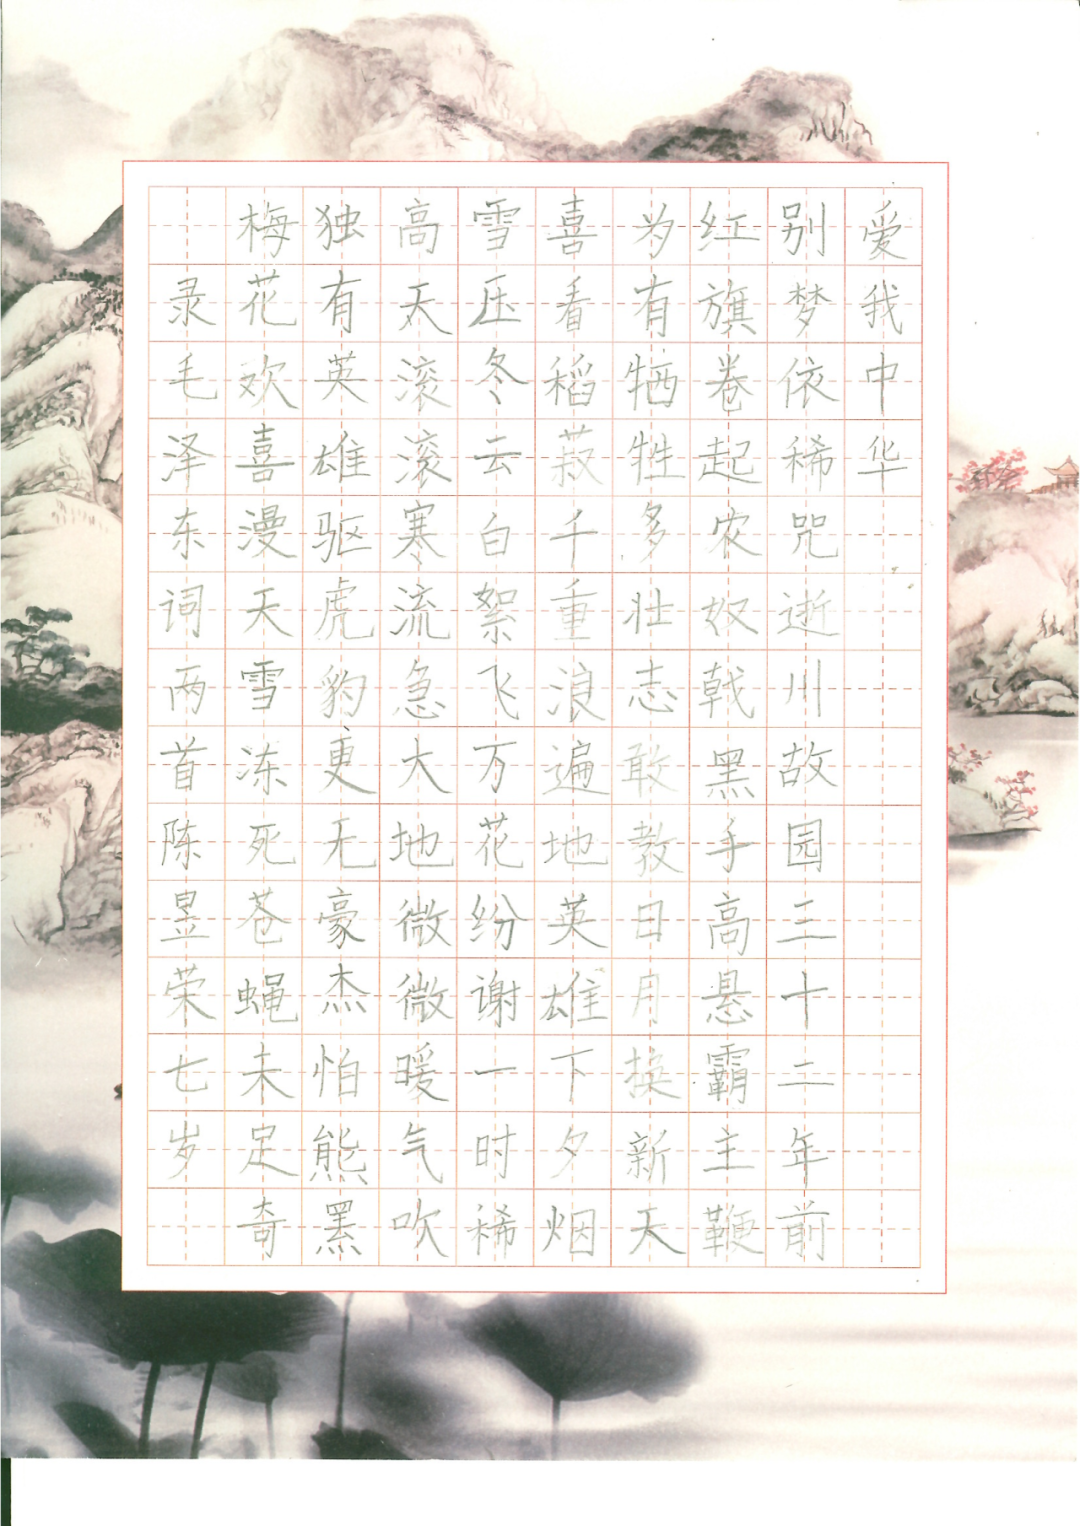 爱我中华
别梦依稀咒逝川故园三十二年前
红旗卷起农奴戟黑手高悬霸主鞭
为有牺牲多壮志敢教日月换新天
喜看稻菽千重浪遍地英雄下夕烟
雪压冬云白絮飞万花纷谢一时稀
高天滚滚寒流急大地微微暖气吹
独有英雄驱虎豹更无豪杰怕熊罴
梅花欢喜漫天雪冻死苍蝇未定奇
录毛泽东词两首陈昱荣七岁